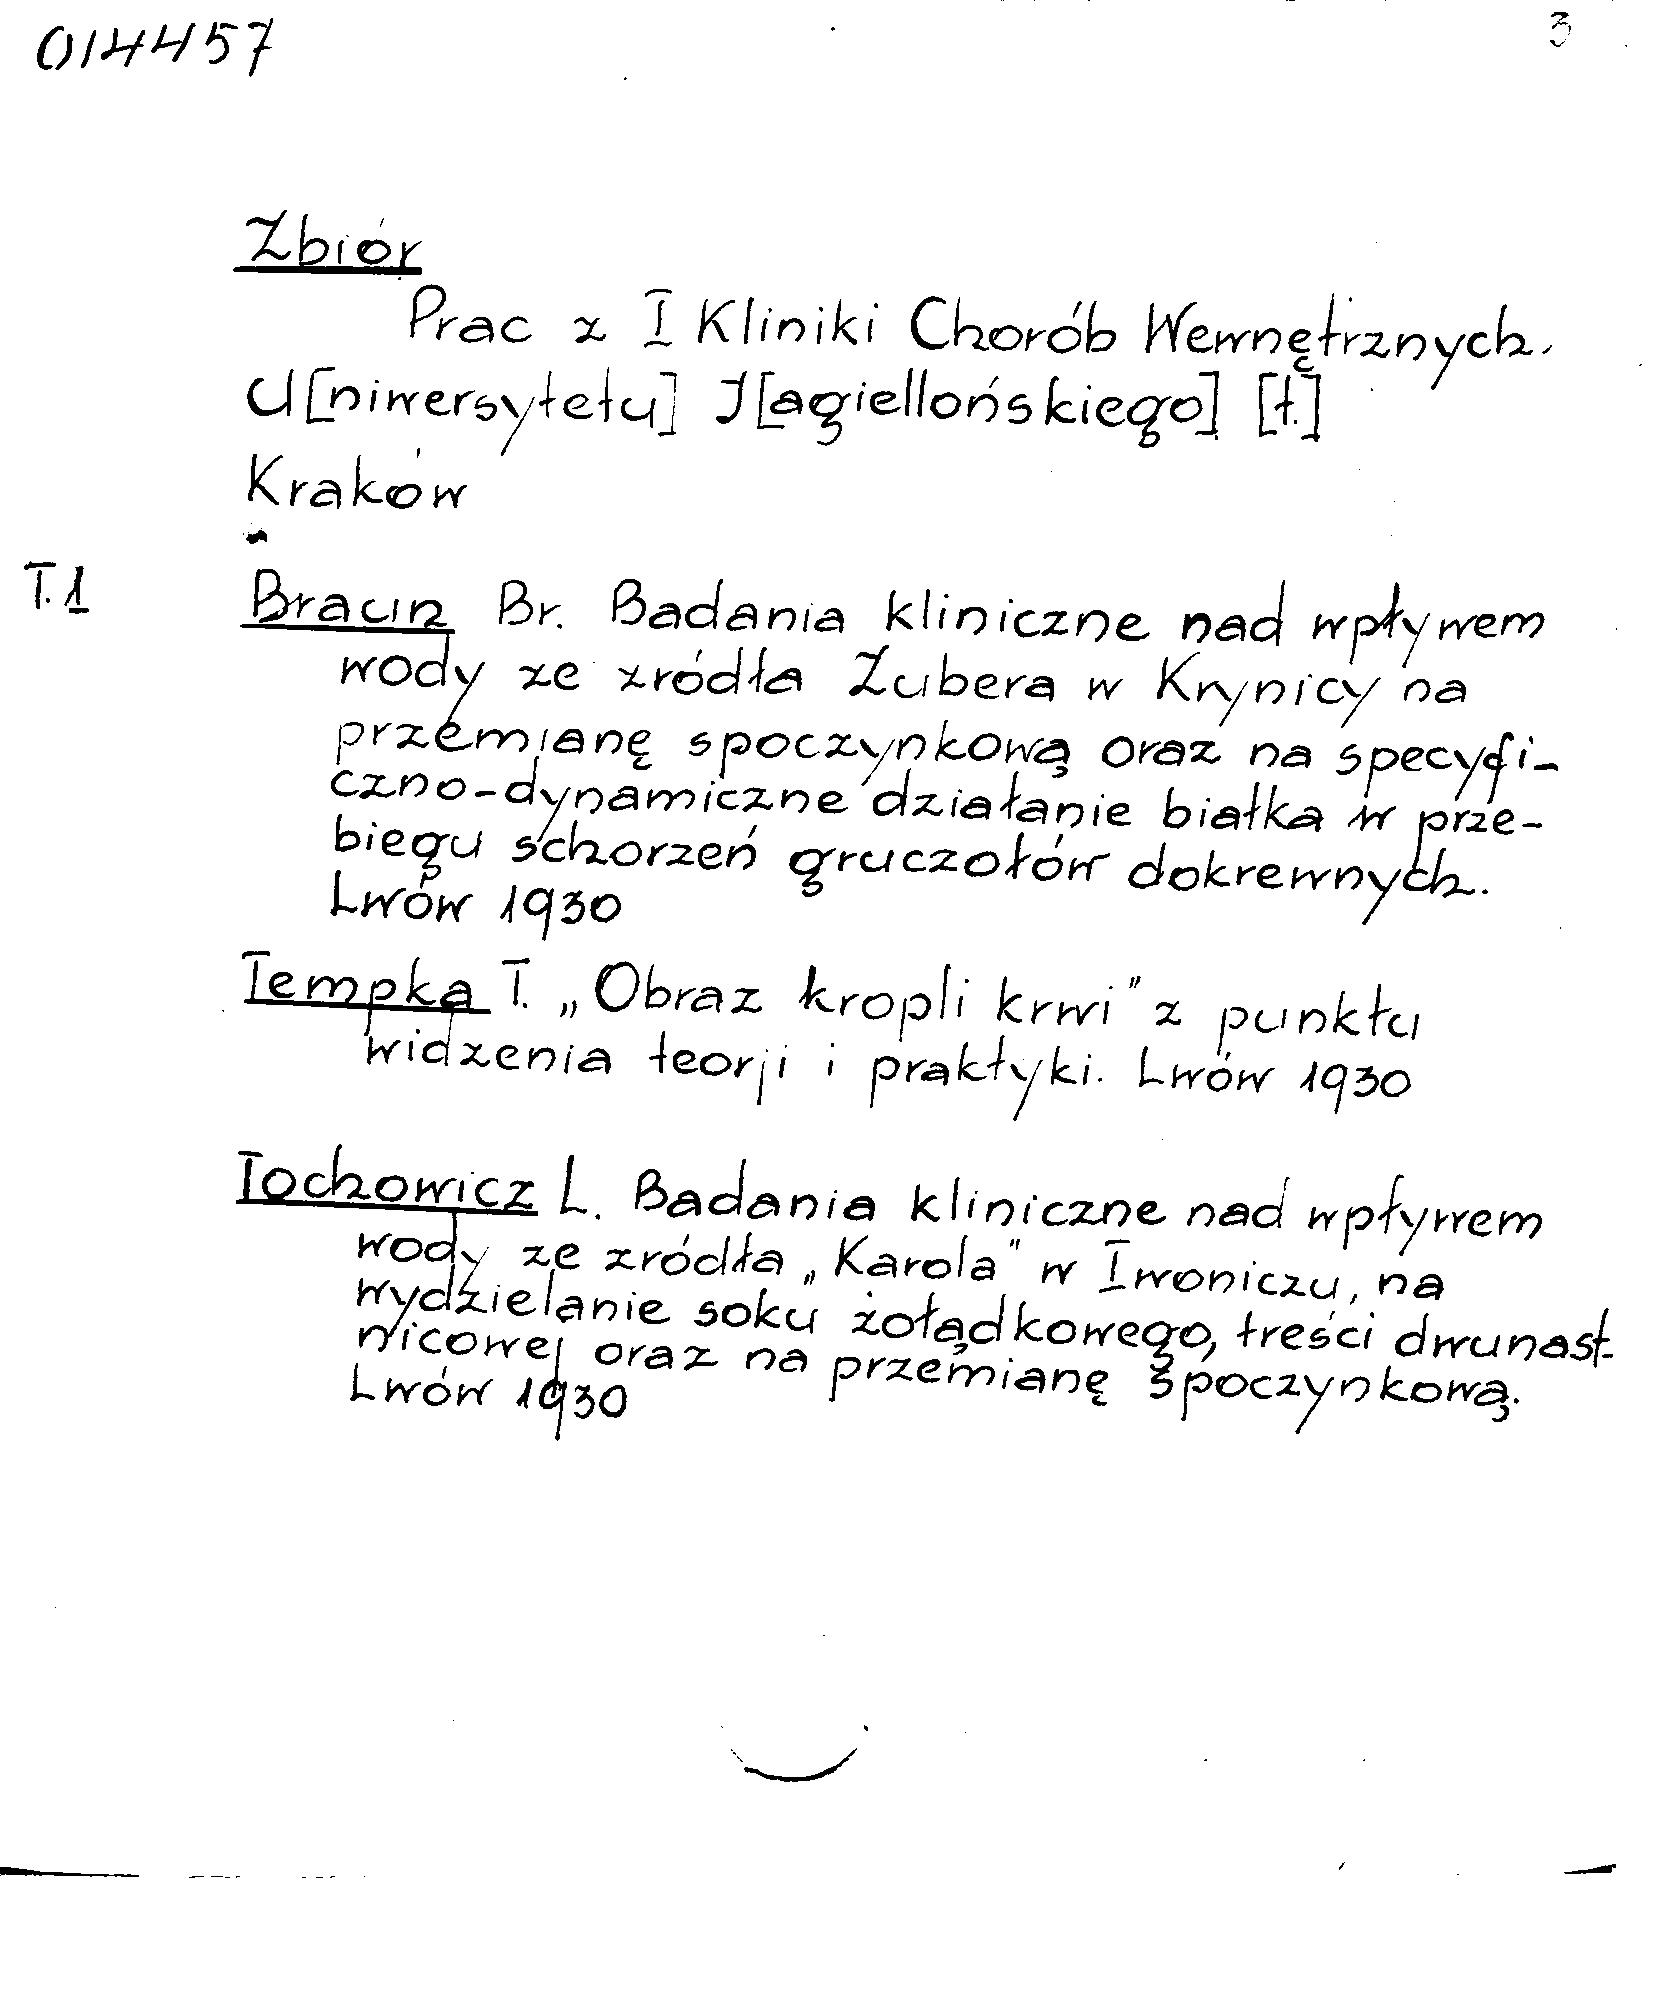 014457
3
Zbiór
Prac z I Kliniki Chorób Wewnętrznych.
U[niwersytetu] J[agiellońskiego] [t.]
Kraków
T.1
Braun Br. Badania kliniczne nad wpływem
wody ze zródła Zubera w Krynicy na
przemianę spoczynkową oraz na specyfi-
czno-dynamiczne działanie białka w prze-
biegu schorzeń gruczołów dokrewnych.
Lwów 1930
Tempka T. „Obraz kropli krwi" z punktu
widzenia teorji i praktyki. Lwów 1930
Tochowicz L. Badania kliniczne nad wpływem
wody ze zródła „Karola" w Iwoniczu, na
wydzielanie soku żołądkowego, treści dwunast-
nicowej oraz na przemianę spoczynkową.
Lwów 1930